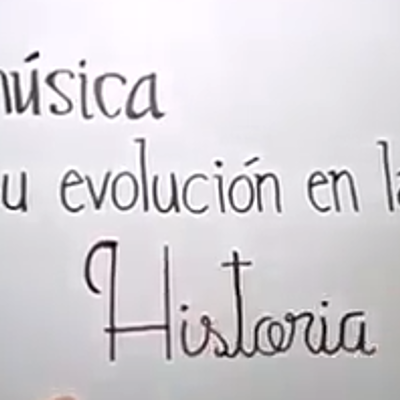 música
u evolución en la
Historia